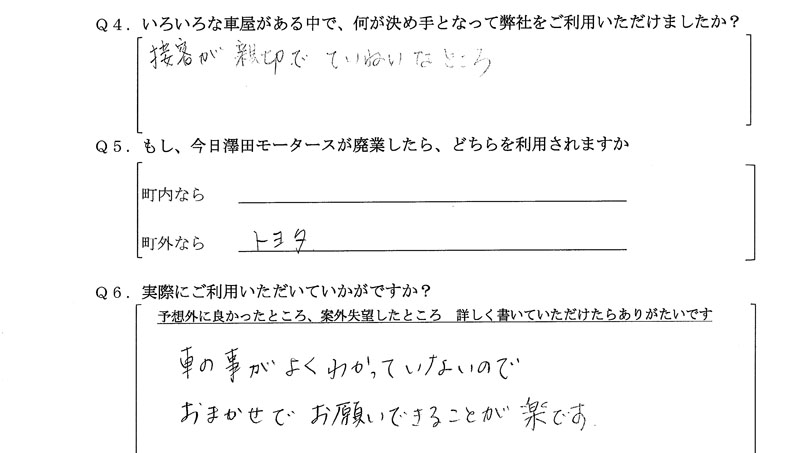 Q4．いろいろな車屋がある中で、何が決め手となって弊社をご利用いただけましたか？
接客が親切でていねいなところ
Q5．もし、今日澤田モータースが廃業したら、どちらを利用されますか
町内なら
町外なら トヨタ
Q6．実際にご利用いただいていかがですか？
予想外に良かったところ、案外失望したところ　詳しく書いていただけたらありがたいです
車の事がよくわかっていないので
おまかせでお願いできることが楽です.